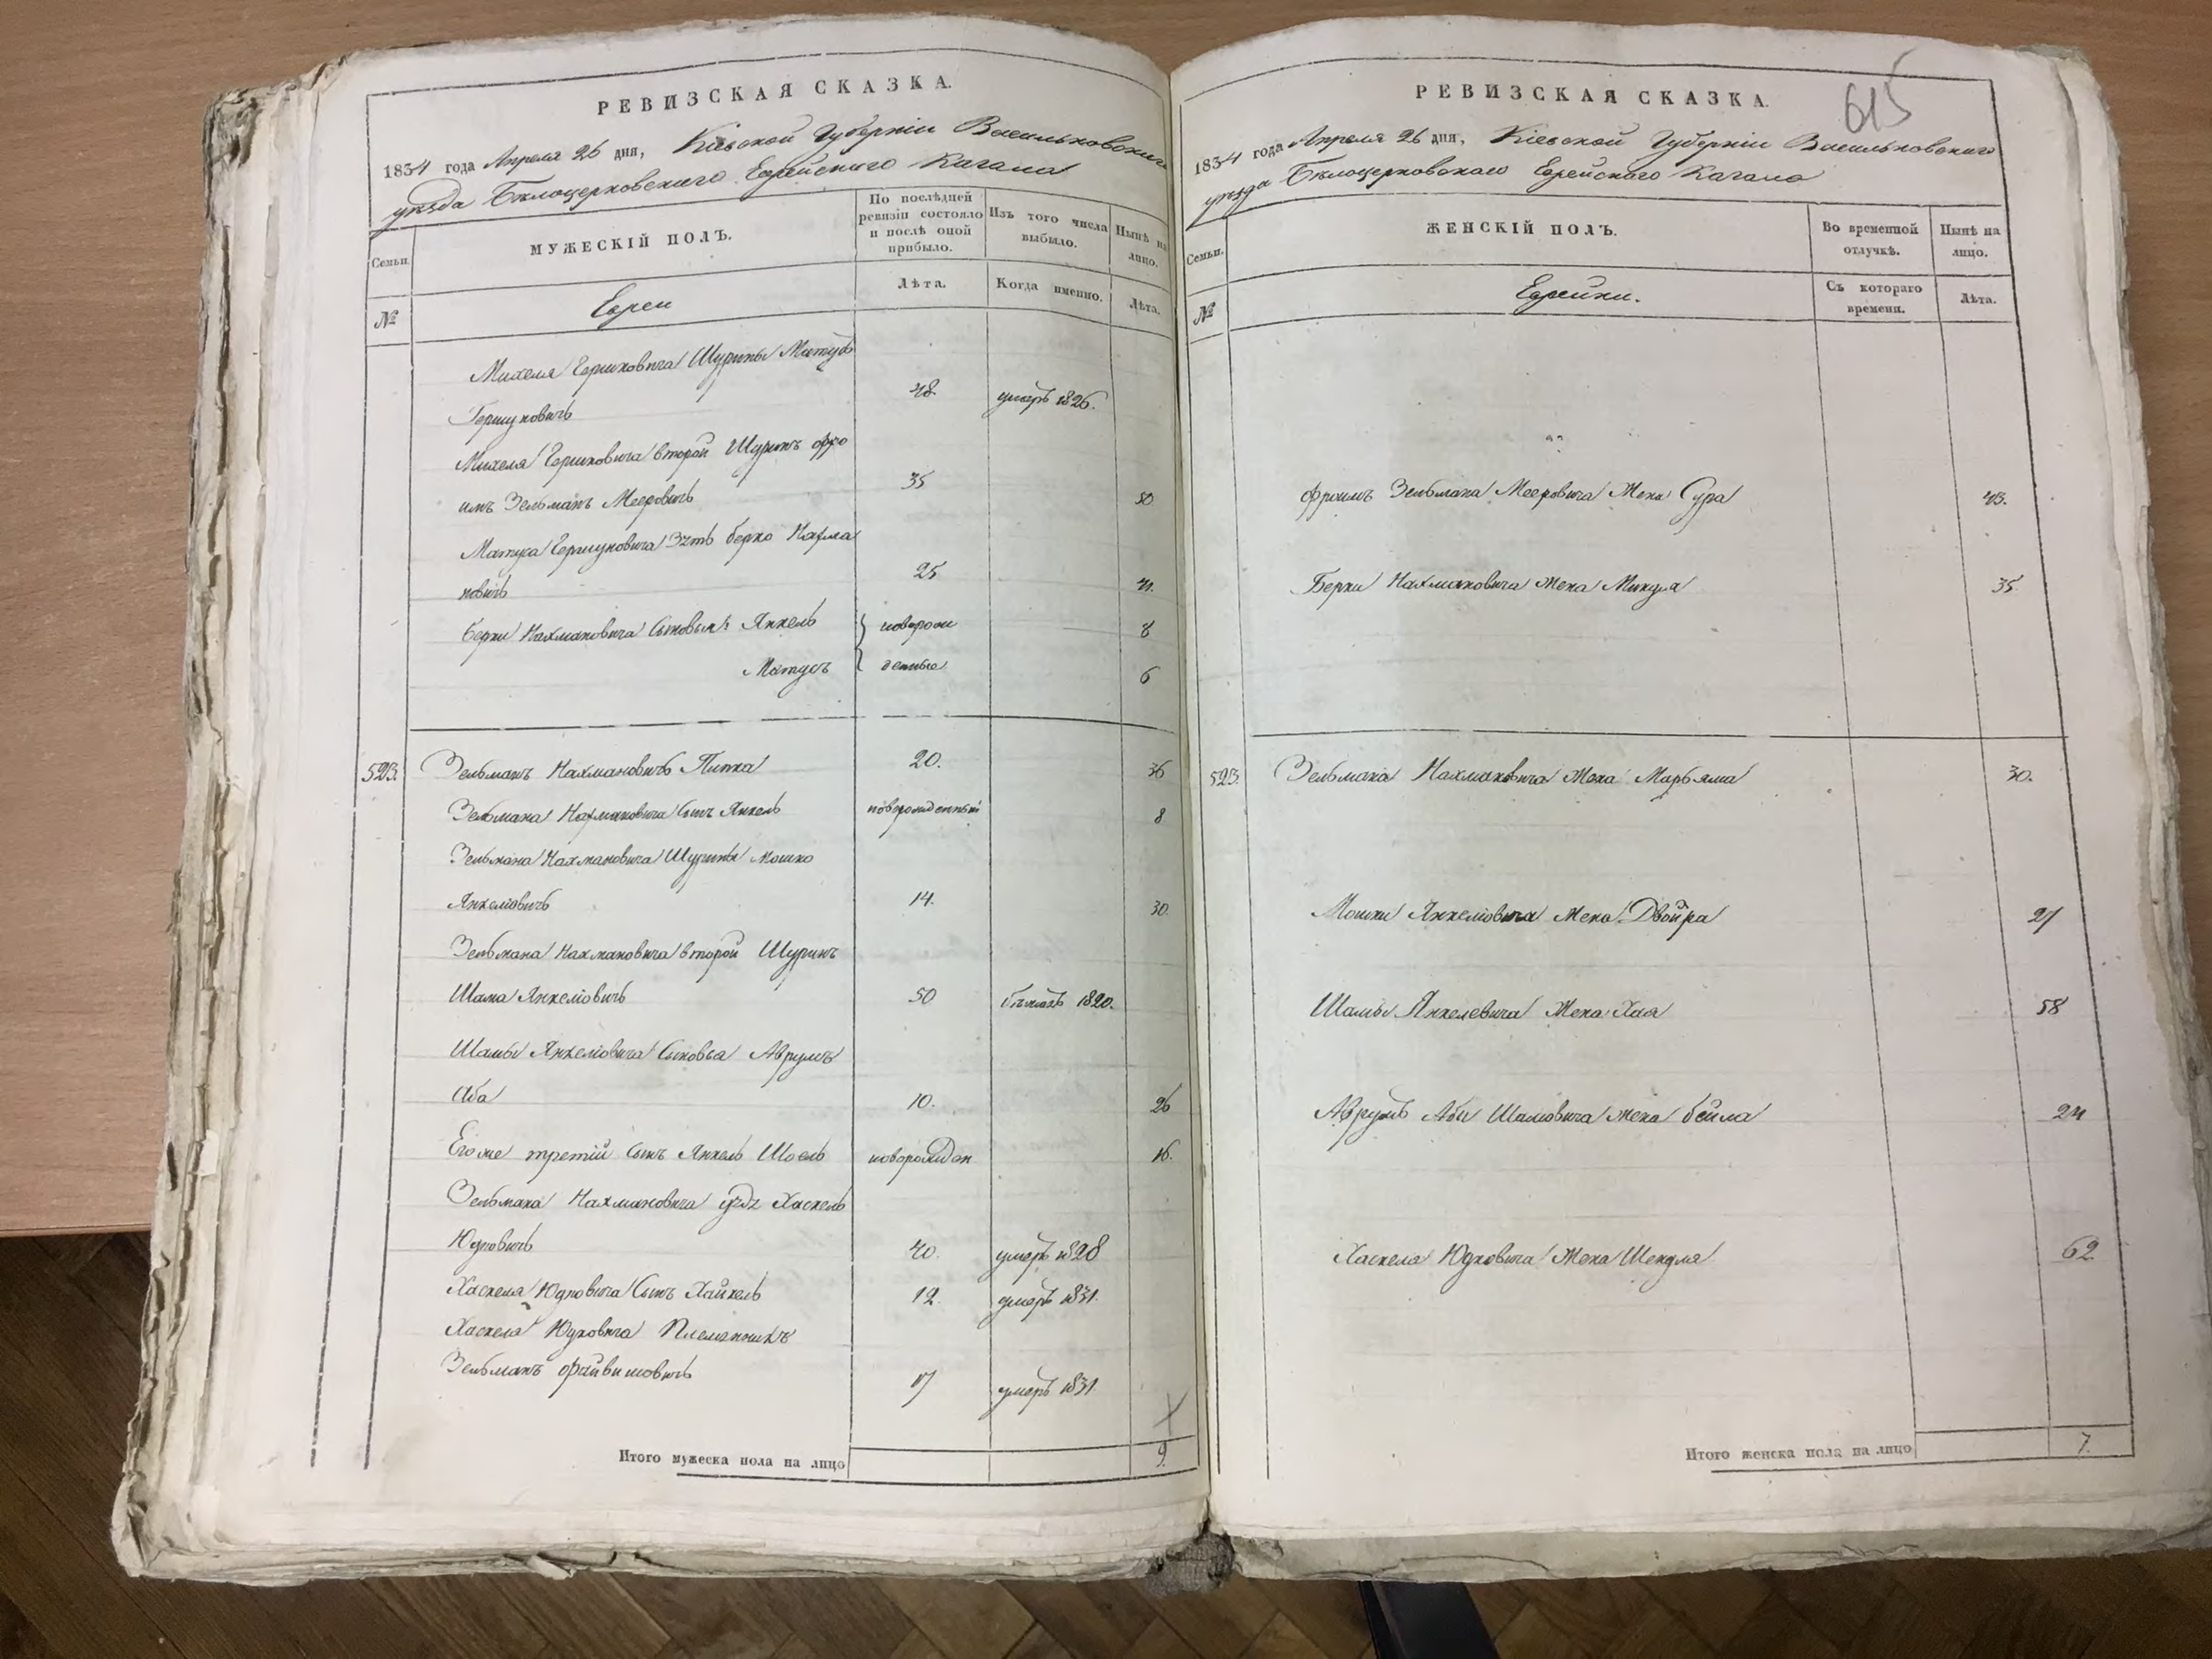 РЕВИЗСКАЯ СКАЗКА.
1834 года Апреля 26 дня, Кіевской Губерніи Васильковскаго
уѣзда Бѣлоцерковскаго Еврейскаго Кагала
Семьи.
МУЖЕСКІЙ ПОЛЪ.
По послѣдней ревизіи состояло и послѣ оной прибыло.
Изъ того числа выбыло.
Нынѣ на лицо.
№
Евреи
Лѣта.
Когда именно.
Лѣта.
Михеля Гершковича Шурины Матус
Гершуновичь 48. умеръ 1826.
Михеля Гершковича второй Шуринъ Фро
имъ Зельманъ Мееровичь 35 50
Матуса Гершуновича Зять Берко Нахма
новичь 25 41.
Берки Нахмановича Сыновья: Янкель } новорож 8
Матусъ } денные 6
523. Зельманъ Нахмановичь Пипка 20. 36
Зельмана Нахмановича Сынъ Янкель новорожденный 8
Зельмана Нахмановича Шурины Мошко
Янкеліовичь 14. 30.
Зельмана Нахмановича второй Шуринъ
Шама Янкеліовичь 50 бѣжалъ 1820.
Шамы Янкеліовича Сыновья Аврумъ
Аба 10. 26
Егоже третій Сынъ Янкель Шоель новорожден 16.
Зельмана Нахмановича Хаскель
Юдковичь 40. умеръ 1828
Хаскеля Юдковича Сынъ Хайкель 12. умеръ 1831.
Хаскеля Юдковича Племянникъ
Зельманъ Файвишовичь 17 умеръ 1831.
Итого мужеска пола на лицо 9.
РЕВИЗСКАЯ СКАЗКА.
615
1834 года Апреля 26 дня, Кіевской Губерніи Васильковскаго
уѣзда Бѣлоцерковскаго Еврейскаго Кагала
Семьи.
ЖЕНСКІЙ ПОЛЪ.
Во временной отлучкѣ.
Нынѣ на лицо.
№
Еврейки.
Съ котораго времени.
Лѣта.
Фроимъ Зельмана Мееровича Жена Сура 43.
Берки Нахмановича Жена Миндля 35.
523. Зельмана Нахмановича Жена Марьяма 30.
Мошки Янкеліовича Жена Двойра 27
Шамы Янкелевича Жена Хая 58
Аврумъ Абы Шамовича Жена Бейла 24
Хаскеля Юдковича Жена Шендля 62
Итого женска пола на лицо 7.